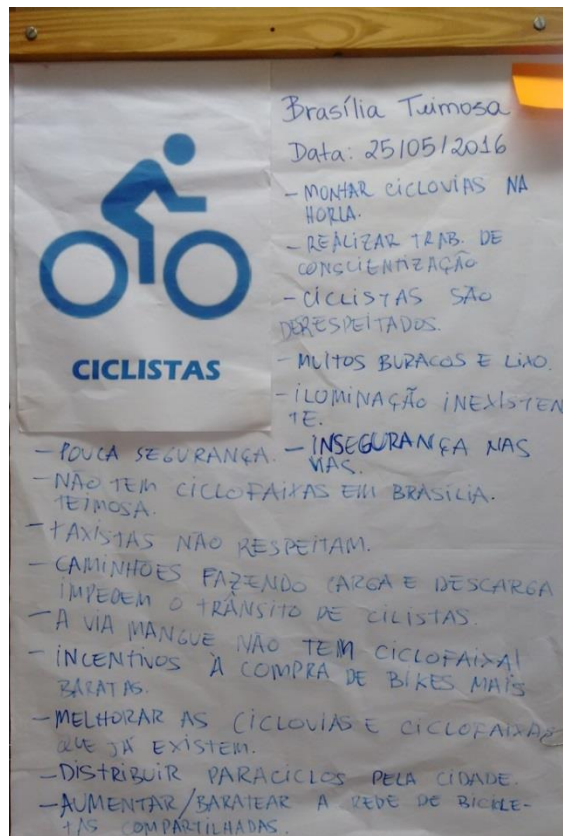 Brasília Teimosa
Data: 25/05/2016
- MONTAR CICLOVIAS NA
HORLA.
- REALIZAR TRAB. DE
CONSCIENTIZAÇÃO
- CICLISTAS SÃO
DERESPEITADOS.
- MUITOS BURACOS E LIXO.
- ILUMINAÇÃO INEXISTEN
TE.
CICLISTAS
- POUCA SEGURANÇA. - INSEGURANÇA NAS
VIAS.
- NÃO TEM CICLOFAIXAS EM BRASÍLIA.
TEIMOSA.
- TAXISTAS NÃO RESPEITAM.
- CAMINHÕES FAZENDO CARGA E DESCARGA
IMPEDEM O TRÂNSITO DE CILISTAS.
- A VIA MANGUE NÃO TEM CICLOFAIXA!
- INCENTIVOS À COMPRA DE BIKES MAIS
BARATAS.
- MELHORAR AS CICLOVIAS E CICLOFAIXAS
QUE JÁ EXISTEM.
- DISTRIBUIR PARACICLOS PELA CIDADE.
- AUMENTAR/BARATEAR A REDE DE BICICLE-
TAS COMPARTILHADAS.